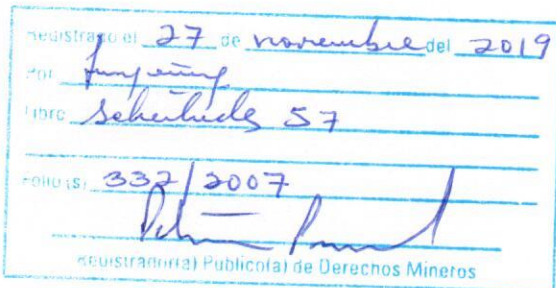 Registrado el 27 de noviembre del 2019
Por
Libro Solicitudes 57
Folio (s) 332/2007
Registrador(a) Público(a) de Derechos Mineros